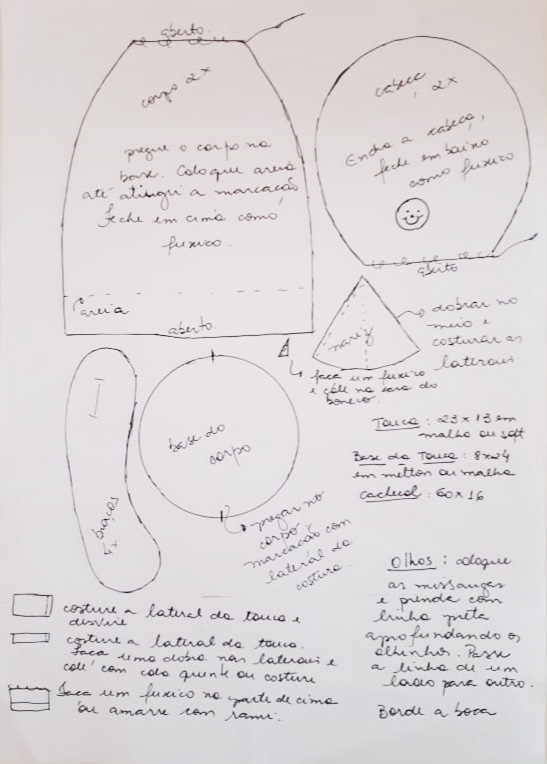 aberto.
corpo 2x
pregue o corpo na
base. Coloque areia
até atingir a marcação
Feche em cima como
fuxico.
areia
aberto
cabeça, 2x
Encha a cabeça,
feche em baixo
como fuxico
aberto
nariz
dobrar no
meio e
costurar as
laterais
faça um fuxico
e cole na cara do
boneco.
braços
4x
base do
corpo
pregar no
corpo
marcação com
lateral da
costura.
Touca: 23x13 em
malha ou soft
Base da Touca: 8x24
em metton ou malha
cachecol: 60x16
Olhos: coloque
as missangas
e prenda com
linha preta
aprofundando os
olhinhos. Passe
a linha de um
lado para outro.
Borde a boca
costure a lateral da touca e
desvire
costure a lateral da touca.
Faça uma dobra nas laterais e
cole com cola quente ou costure
Faca um fuxico na parte de cima
ou amarre com rami.